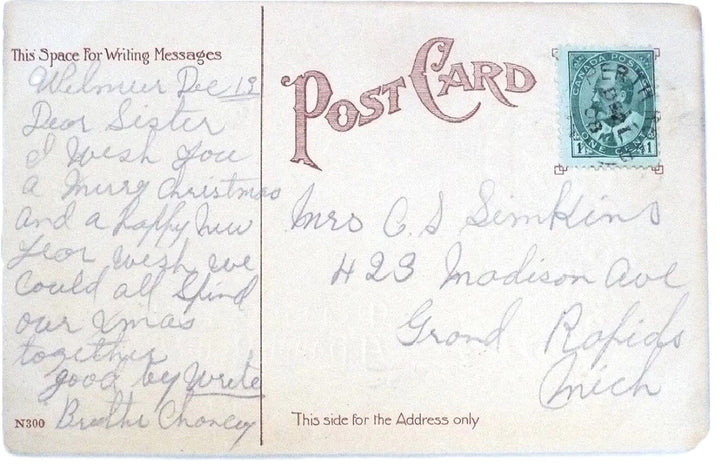 This Space For Writing Messages
POST CARD
CANADA POSTAGE
1 ONE CENT 1
Dec 19
Dear Sister
I Wish you
a Merry Christmas
and a happy New
year wish we
could all Spind
our Xmas
together
good by Write
N300
Mrs C. S Simkins
423 Madison Ave
Grand Rapids
Mich
This side for the Address only